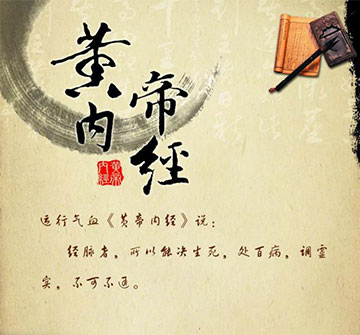 黄帝内經
黄帝
内經
运行气血《黄帝内经》说：
经脉者，所以能决生死，处百病，调虚
实，不可不通。